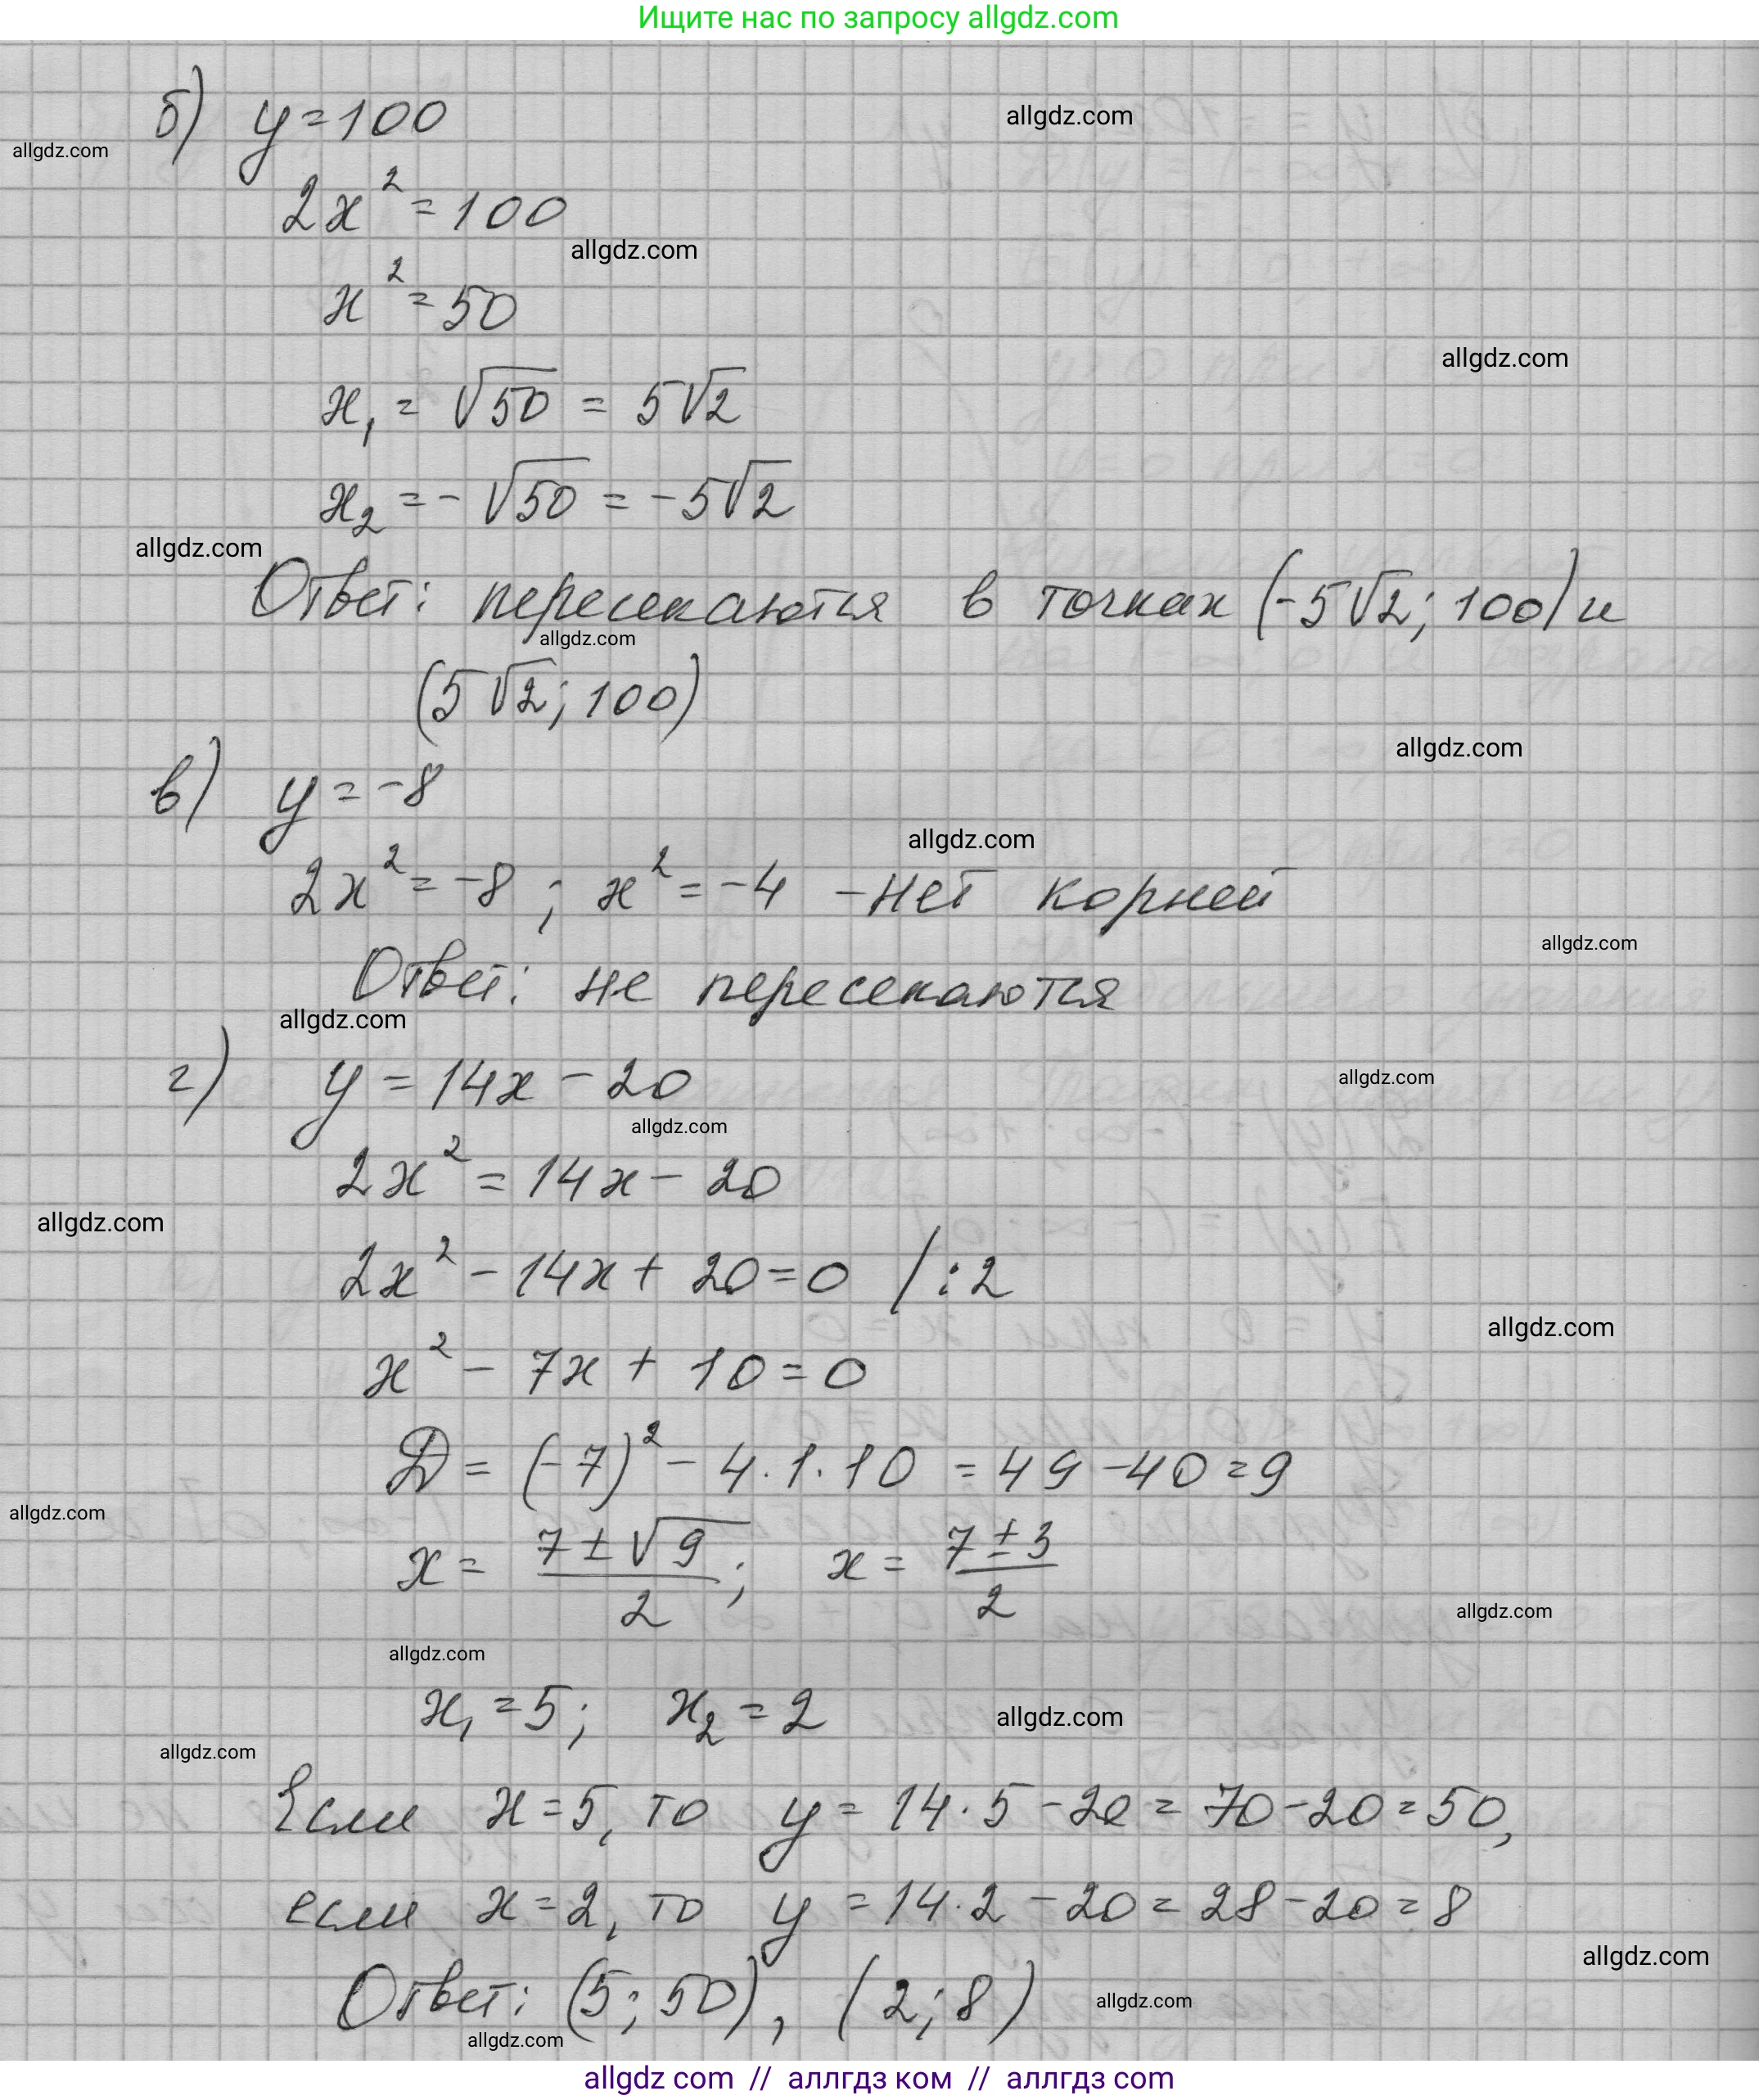 Ищите нас по запросу allgdz.com
б) y=100
allgdz.com
allgdz.com
2x²=100
allgdz.com
x²=50
allgdz.com
x₁=√50=5√2
x₂=-√50=-5√2
allgdz.com
Ответ: пересекаются в точках (-5√2; 100) и
allgdz.com
(5√2; 100)
allgdz.com
в) y=-8
allgdz.com
2x²=-8; x²=-4 -нет корней
allgdz.com
Ответ: не пересекаются
allgdz.com
г) y=14x-20
allgdz.com
allgdz.com
2x²=14x-20
allgdz.com
2x²-14x+20=0 /:2
allgdz.com
x²-7x+10=0
D=(-7)²-4·1·10=49-40=9
allgdz.com
x=(7±√9)/2; x=(7±3)/2
allgdz.com
allgdz.com
x₁=5; x₂=2
allgdz.com
allgdz.com
Если x=5, то y=14·5-20=70-20=50,
если x=2, то y=14·2-20=28-20=8
allgdz.com
Ответ: (5; 50), (2; 8)
allgdz.com
allgdz.com
allgdz com // аллгдз ком // аллгдз com